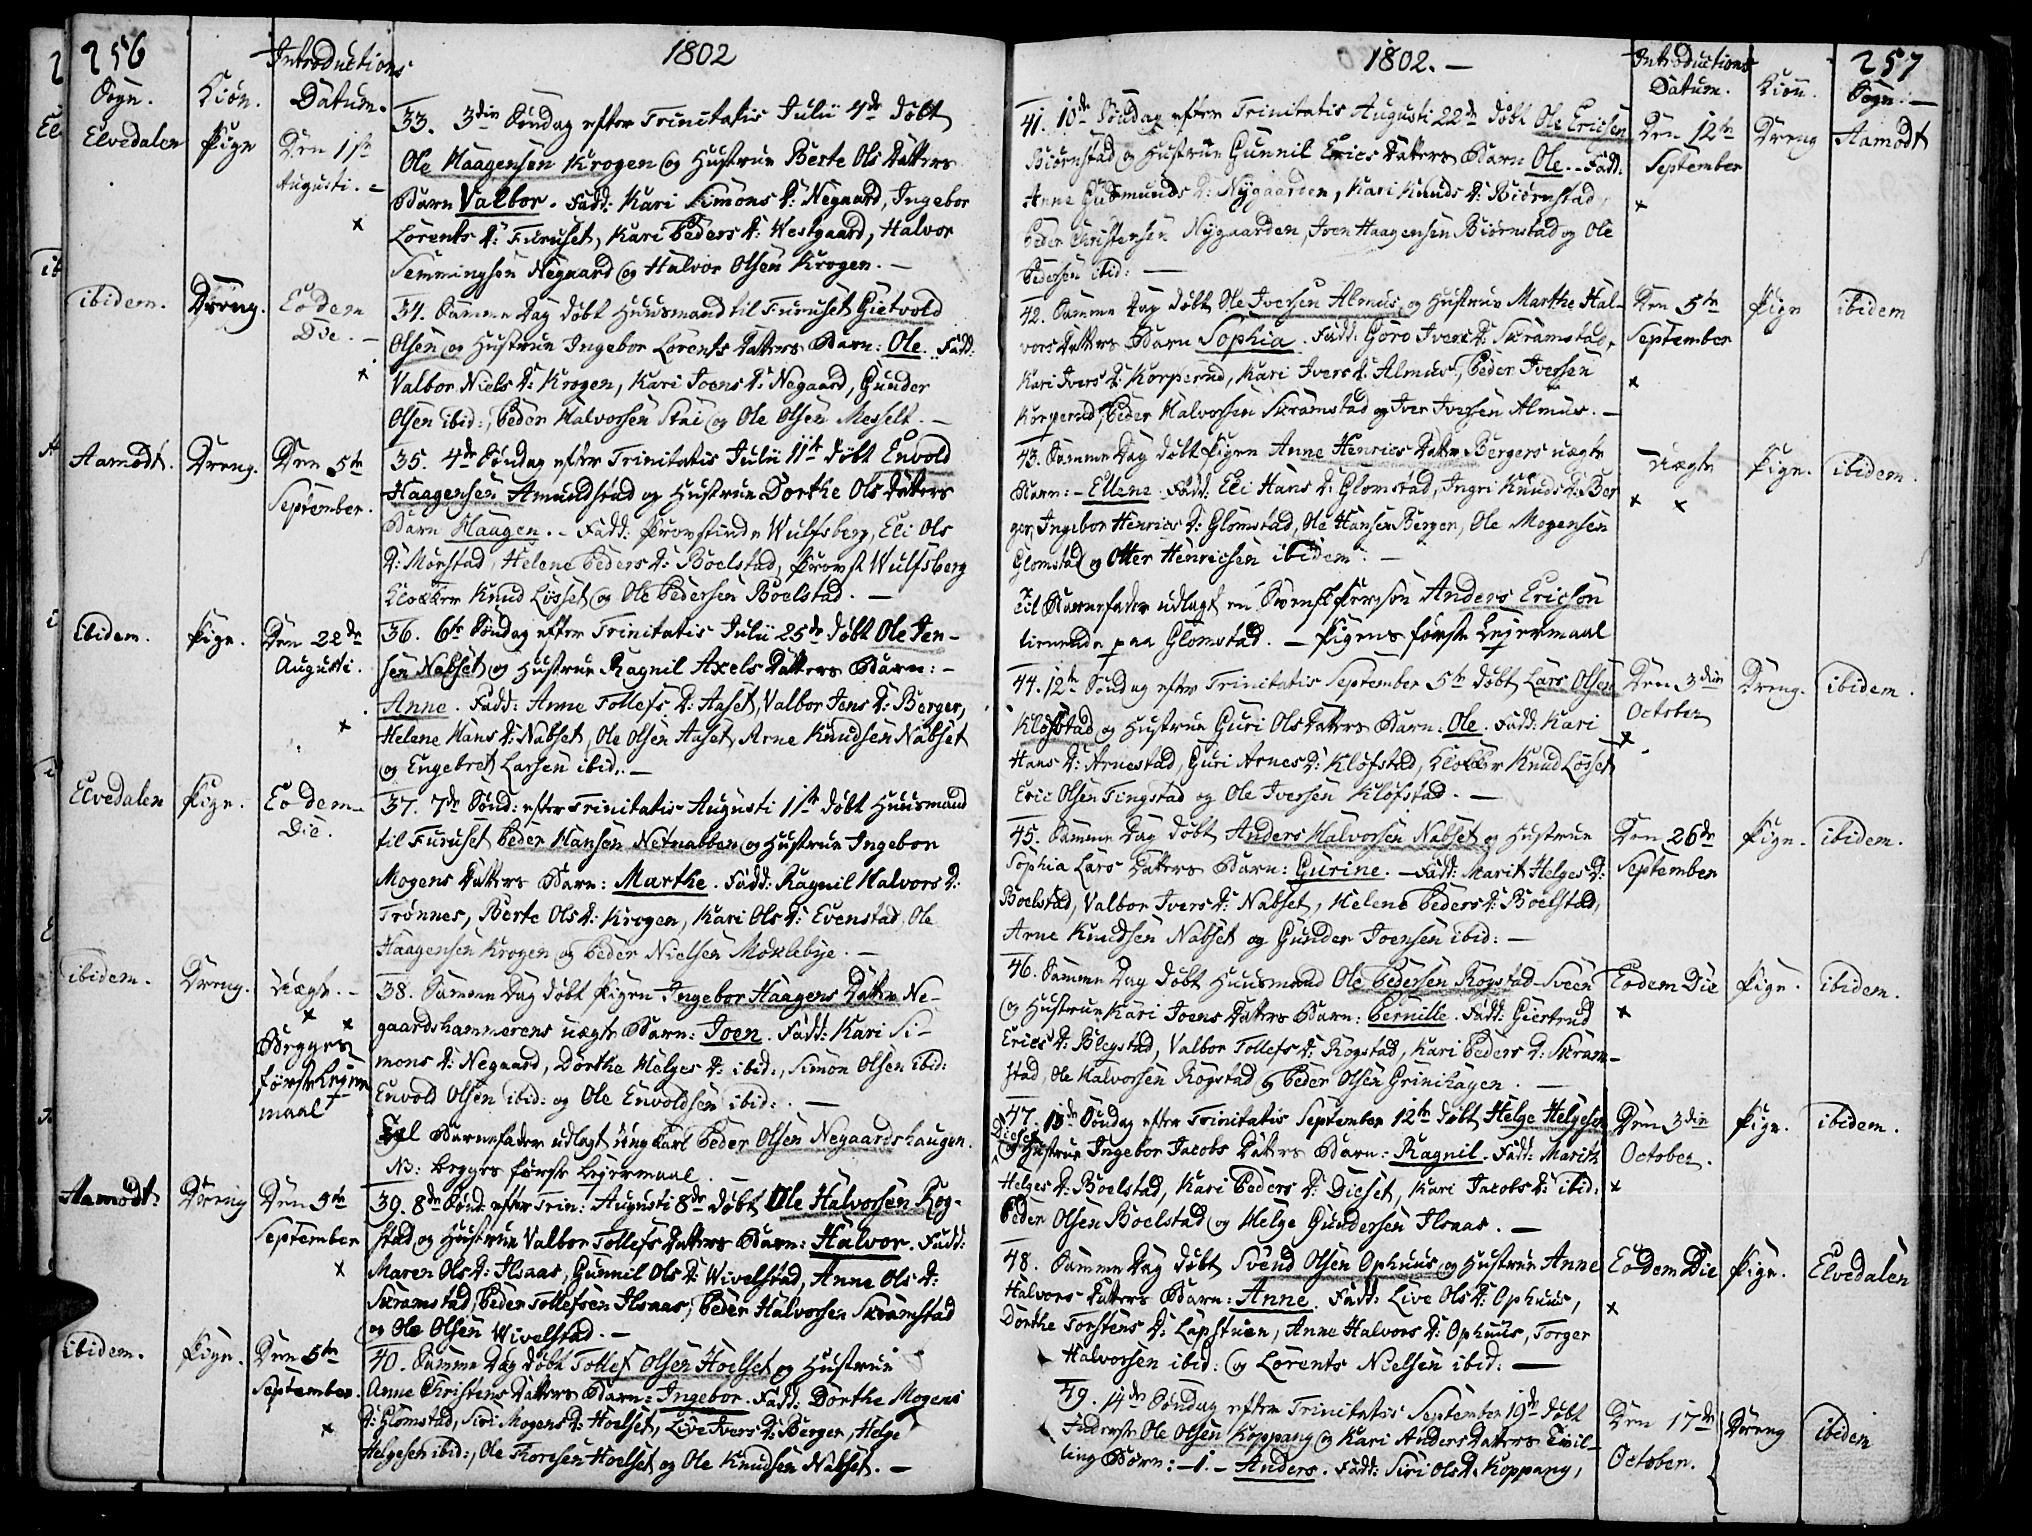 256
1802
Sogn.
Kiön.
Introductions
Datum.
Elvedalen
Pige
Den 1ste
Augusti.
33. 3die Söndag efter Trinitatis Julii 4de döbt
Ole Haagensen Krogen og Hustrue Berte Ols Datters
Barn Valbor. Fadd: Kari Simons D: Negaard, Ingebor
Lorents D: Furuset, Kari Peders D: Westgaard, Halvor
Semmingsen Negaard og Halvor Olsen Krogen.
ibidem.
Dreng.
Eodem
Die.
34. Samme Dag döbt Huusmand til Furuset Gietvold
Olsen og Hustrue Ingebor Lorents Datters Barn: Ole. Fadd:
Valbor Niels D: Krogen, Kari Joens D: Negaard, Gunder
Olsen ibid:, Peder Halvorsen Stai og Ole Olsen Messelt.
Aamodt.
Dreng.
Den 5te
September.
35. 4de Söndag efter Trinitatis Julii 11te döbt Envold
Haagensen Amundstad og Hustrue Dorthe Ols Datters
Barn Haagen. Fadd: Provstinde Wulfsberg, Eli Ols
D: Morstad, Helene Peders D: Boelstad, Provst Wulfsberg
Klokker Knud Lösset og Ole Pedersen Boelstad.
ibidem.
Pige.
Den 22de
Augusti.
36. 6te Söndag efter Trinitatis Julii 25de döbt Ole Jen-
sen Nabset og Hustrue Ragnil Axels Datters Barn:
Anne. Fadd: Anne Tollefs D: Aaset, Valbor Jens D: Berger,
Helene Hans D: Nabset, Ole Olsen Aaset, Arne Knudsen Nabset
og Engebret Larsen ibid:
Elvedalen
Pige.
Eodem
Die.
37. 7de Sönd: efter Trinitatis Augusti 1ste döbt Huusmand
til Furuset Peder Hansen Netnabben og Hustrue Ingebor
Mogens Datters Barn: Marthe. Fadd: Ragnil Halvors D:
Trönnes, Berte Ols D: Krogen, Kari Ols D: Evenstad, Ole
Haagensen Krogen og Peder Nielsen Moklebye.
ibidem.
Dreng.
Uægte.
Begges
förste Leyer
maal
38. Samme Dag döbt Pigen Ingebor Haagens Datter Ne-
gaardshammerens uægte Barn: Joen. Fadd: Kari Si-
mons D: Negaard, Dorthe Helges D: ibid:, Simon Olsen ibid:
Envold Olsen ibid: og Ole Envoldsen ibid:
Til Barnefader udlagt ungkarl Peder Olsen Negaardshaugen.
NB: begges förste Leyermaal.
Aamodt.
Dreng
Den 5te
September
39. 8de Sönd: efter Trin: Augusti 8de döbt Ole Halvorsen Rog-
stad og Hustrue Valbor Tollefs Datters Barn: Halvor. Fadd:
Maren Ols D: Ilsaas, Gunnil Ols D: Wivelstad, Anne Ols D:
Skramstad, Peder Tollefsen Ilsaas, Peder Halvorsen Skramstad
og Ole Olsen Wivelstad.
ibidem.
Pige.
Den 5te
September.
40. Samme Dag döbt Tollef Olsen Hoelset og Hustrue
Anne Christens Datters Barn: Ingebor. Fadd: Dorthe Mogens
D: Glomstad, Siri Mogens D: Hoelset, Live Ivers D: Berger, Helge
Helgesen ibid:, Ole Thoresen Hoelset og Ole Knudsen Nabset.
1802.
Introductions
Datum.
Kiön.
257
Sogn:
41. 10de Söndag efter Trinitatis Augusti 22de döbt Ole Ericsen
Biörnstad og Hustrue Gunnil Erics Datters Barn Ole. Fadd:
Anne Gudmunds D: Nygaarden, Kari Knuds D: Biörnstad,
Peder Christensen Nygaarden, Joen Haagensen Biörnstad og Ole
Pedersen ibid:
Den 12te
September
Dreng
Aamodt
42. Samme Dag döbt Ole Iversen Almus og Hustrue Marthe Hal-
vors Datters Barn Sophia. Fadd: Goro Ivers D: Skramstad,
Kari Ivers D: Korperud, Kari Ivers D: Almus, Peder Iversen
Korperud, Peder Halvorsen Skramstad og Iver Iversen Almus.
Den 5te
September
Pige
ibidem
43. Samme Dag döbt Pigen Anne Henrics Datter Bergers uægte
Barn: Ellene. Fadd: Eli Hans D: Glomstad, Ingri Knuds D: Ber
ger, Ingebor Henrics D: Glomstad, Ole Hansen Berger, Ole Mogensen
Glomstad og Otter Henricsen ibidem.
Til Barnefader udlagt en Svensk Person Anders Ericson
tienende paa Glomstad. Pigens förste Leyermaal
Uægte
Pige.
ibidem.
44. 12te Söndag efter Trinitatis September 5te döbt Lars Olsen
Klöfstad og Hustrue Guri Ols Datters Barn: Ole. Fadd: Kari
Hans D: Arnestad, Guri Arnes D: Klöfstad, Klokker Knud Lösset
Eric Olsen Tingstad og Ole Iversen Klöfstad.
Den 3die
October
Dreng.
ibidem.
45. Samme Dag döbt Anders Halvorsen Nabset og Hustrue
Sophia Lars Datters Barn: Gurine. Fadd: Marit Helges D:
Boelstad, Valbor Ivers D: Nabset, Helene Peders D: Boelstad,
Arne Knudsen Nabset og Gunder Joensen ibid:
Den 26de
September
Pige.
ibidem.
46. Samme Dag döbt Huusmand Ole Pedersen Rogstad-Sveen
og Hustrue Kari Joens Datters Barn: Pernille. Fadd: Giertrud
Erics D: Blegstad, Valbor Tollefs D: Rogstad, Kari Peders D: Skram-
stad, Ole Halvorsen Rogstad og Peder Olsen Grinihagen.
Eodem Die
Pige.
ibidem.
47. 13de Söndag efter Trinitatis September 12te döbt Helge Helgesen
Dieset
og Hustrue Ingebor Jacobs Datters Barn: Ragnil. Fadd: Marith
Helges D: Boelstad, Kari Peders D: Dieset, Kari Jacobs D: ibid:
Peder Olsen Boelstad og Helge Gundersen Ilsaas.
Den 3die
October.
Pige.
ibidem.
48. Samme Dag döbt Svend Olsen Ophuus og Hustrue Anne
Halvors Datters Barn: Anne. Fadd: Live Ols D: Ophuus,
Dorthe Torstens D: Lapstuen, Anne Halvors D: Ophuus, Torger
Halvorsen ibid: og Lorents Nielsen ibid:
Eodem Die
Pige.
Elvedalen
49. 14de Söndag efter Trinitatis September 19de döbt
Inderste Ole Olsen Koppang og Kari Anders Datters Tvil-
ling Börn: 1. Anders. Fadd: Siri Ols D: Koppang,
Den 17de
October.
Dreng
ibidem